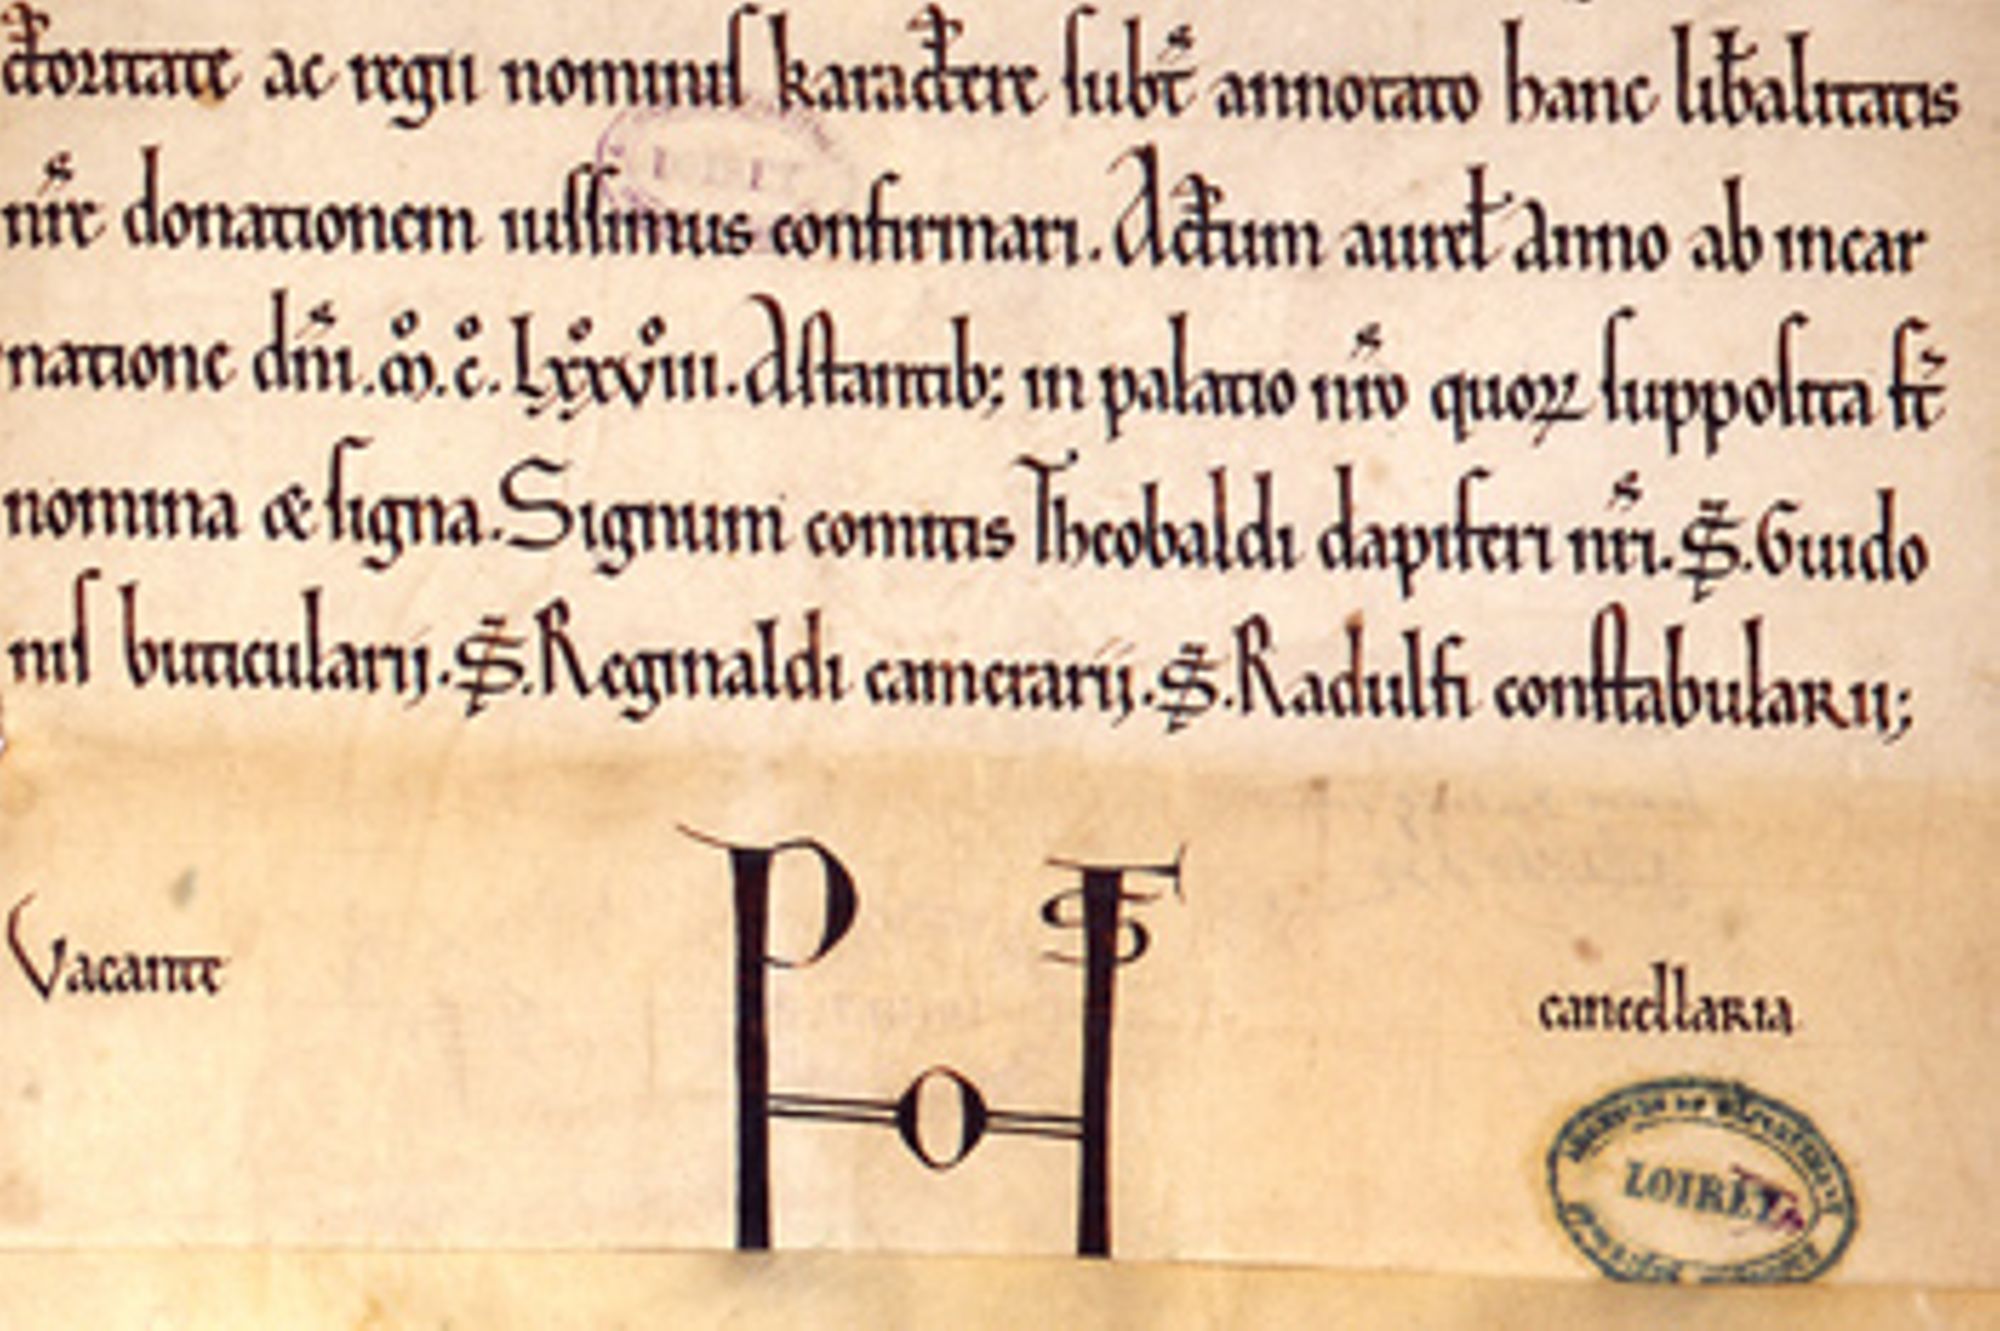 ctoritate ac regii nominis karactere subt̃ annotato hanc lib̃alitatis
nr̃e donationem iussimus confirmari. Actum aurel̃ Anno ab incar
natione dñi. m̊. c̊. lxxviii. Astantib; in palatio nr̃o quoꝝ supposita st̃
nomina & signa. Signum comitis Theobaldi dapiferi nr̃i. S̃. Guido
nis buticularij. S̃. Reginaldi camerarij. S̃. Radulfi constabularii;
P H S T O
Vacante
cancellaria
LOIRET